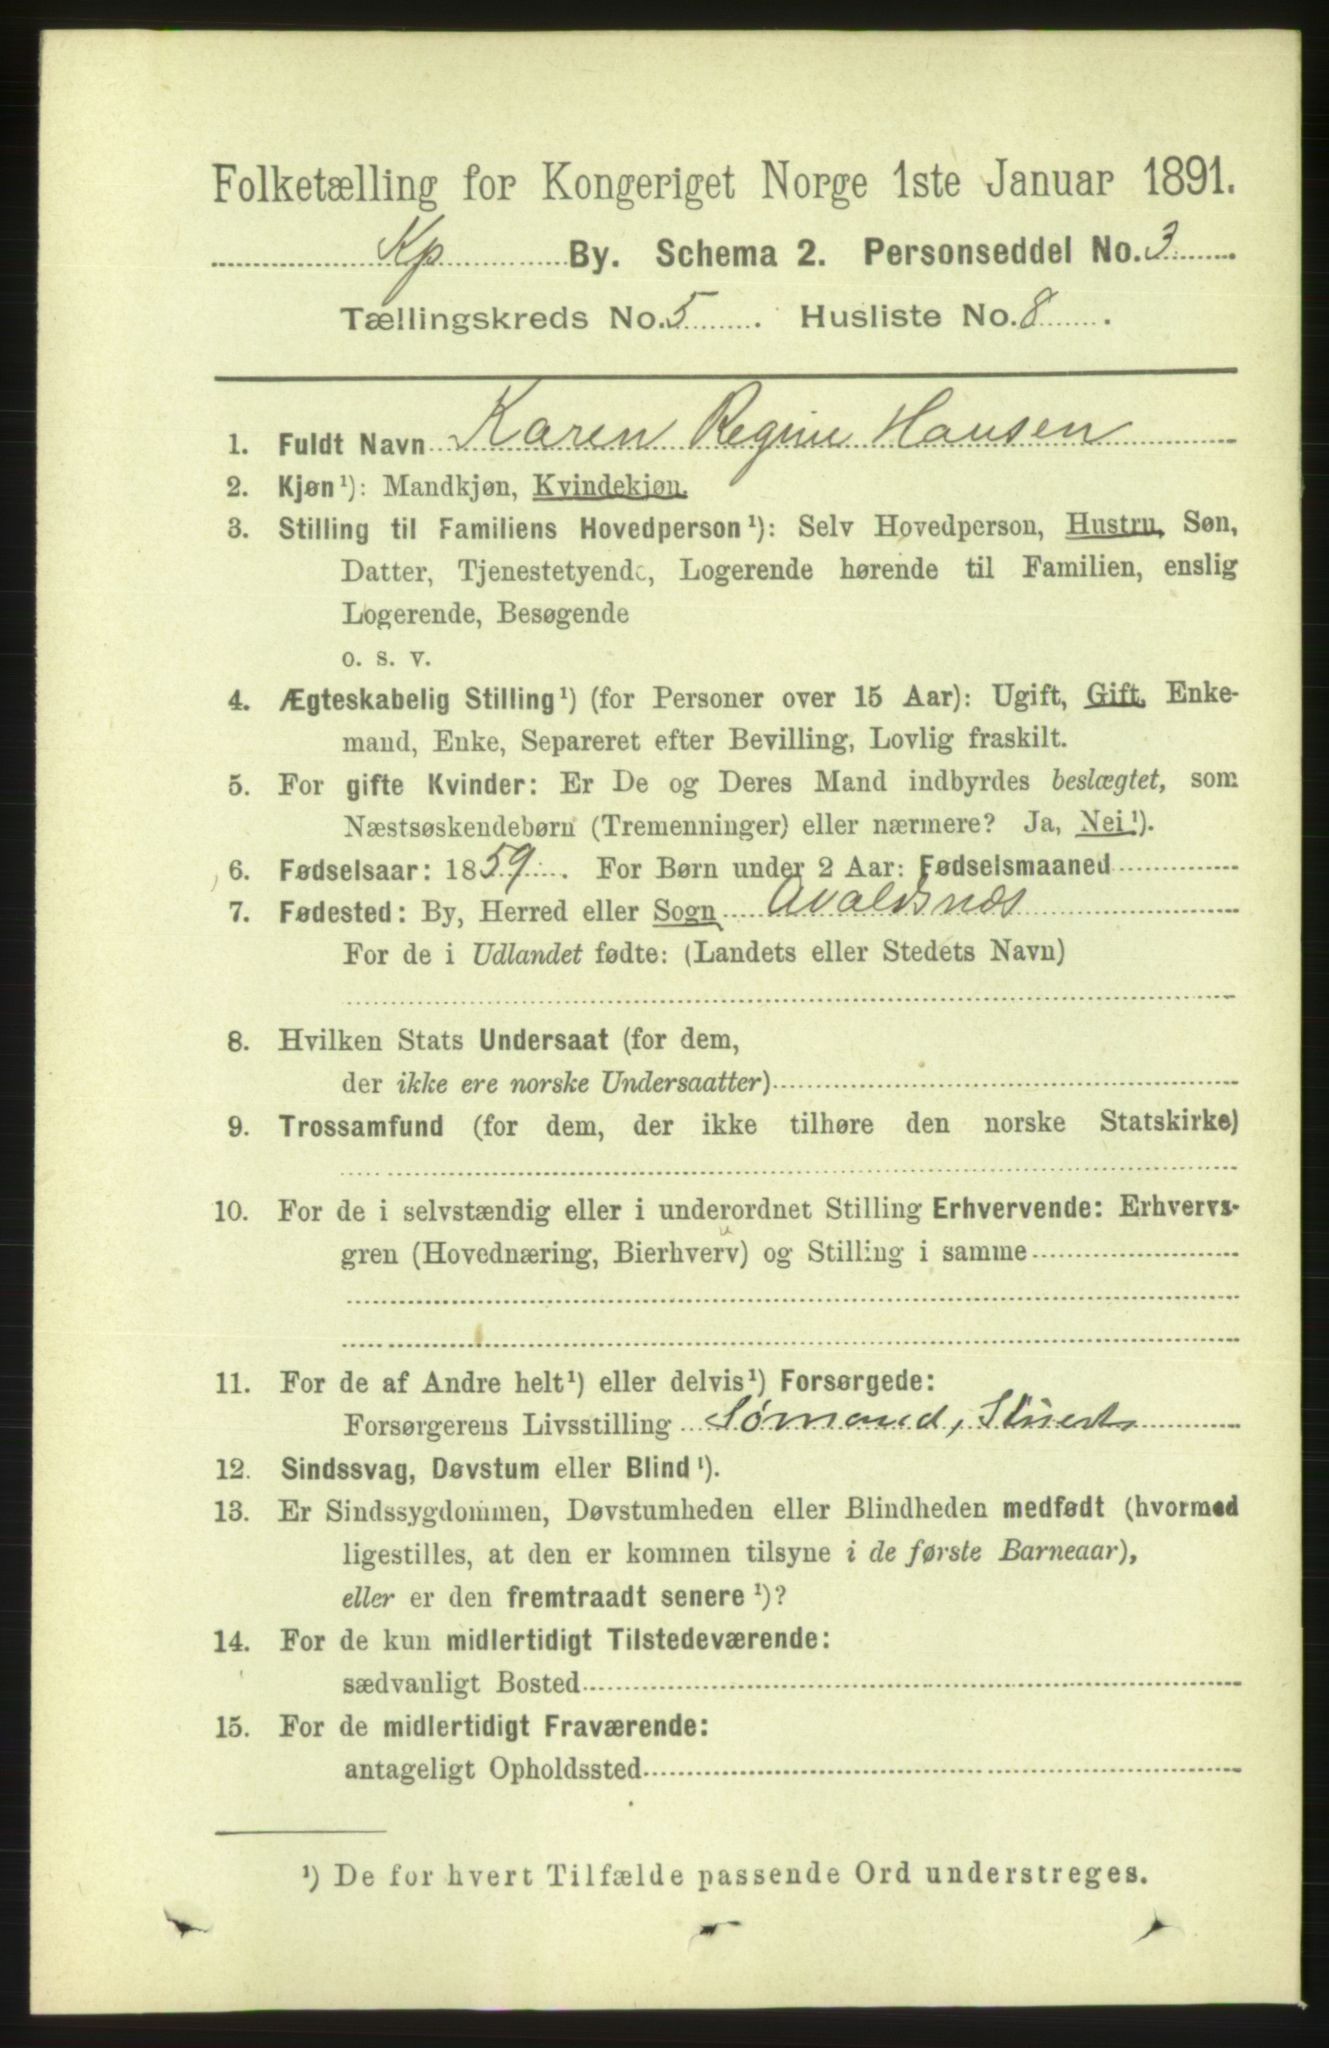 Folketælling for Kongeriget Norge 1ste Januar 1891.
Kp By. Schema 2. Personseddel No. 3
Tællingskreds No. 5. Husliste No. 8.
1. Fuldt Navn Karen Regine Hansen
2. Kjøn¹): Mandkjøn, Kvindekjøn.
3. Stilling til Familiens Hovedperson¹): Selv Hovedperson, Hustru, Søn,
Datter, Tjenestetyende, Logerende hørende til Familien, enslig
Logerende, Besøgende
o. s. v.
4. Ægteskabelig Stilling¹) (for Personer over 15 Aar): Ugift, Gift, Enke-
mand, Enke, Separeret efter Bevilling, Lovlig fraskilt.
5. For gifte Kvinder: Er De og Deres Mand indbyrdes beslægtet, som
Næstsøskendebørn (Tremenninger) eller nærmere? Ja, Nei¹).
6. Fødselsaar: 1859. For Børn under 2 Aar: Fødselsmaaned
7. Fødested: By, Herred eller Sogn Avaldsnæs
For de i Udlandet fødte: (Landets eller Stedets Navn)
8. Hvilken Stats Undersaat (for dem,
der ikke ere norske Undersaatter)
9. Trossamfund (for dem, der ikke tilhøre den norske Statskirke)
10. For de i selvstændig eller i underordnet Stilling Erhvervende: Erhvervs-
gren (Hovednæring, Bierhverv) og Stilling i samme
11. For de af Andre helt¹) eller delvis¹) Forsørgede:
Forsørgerens Livsstilling Sømand,
12. Sindssvag, Døvstum eller Blind¹).
13. Er Sindssygdommen, Døvstumheden eller Blindheden medfødt (hvormed
ligestilles, at den er kommen tilsyne i de første Barneaar),
eller er den fremtraadt senere¹)?
14. For de kun midlertidigt Tilstedeværende:
sædvanligt Bosted
15. For de midlertidigt Fraværende:
antageligt Opholdssted
¹) De for hvert Tilfælde passende Ord understreges.